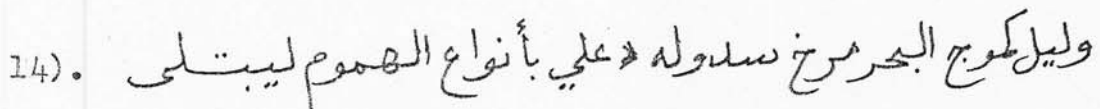 وليل كموج البحر مرخ سدوله * علي بأنواع الهموم ليبتلى .(14